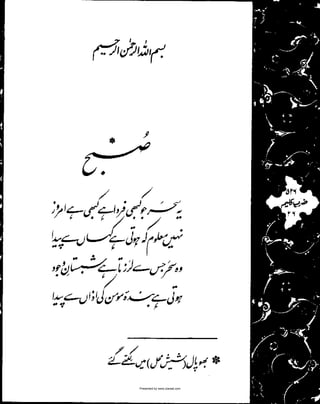 بسم اللہ الرحمٰن الرحیم
صُبح *
یہ سحر جو کبھی فردا ہے کبھی ہے امروز
نہیں معلوم کہ ہوتی ہے کہاں سے پیدا
وہ سحر جس سے لرزتا ہے شبستانِ وجود
ہوتی ہے بندۂ مومن کی اذاں سے پیدا
* بھوپال (شیش محل) میں لکھے گئے
ضربِ کلیم
Presented by www.ziaraat.com